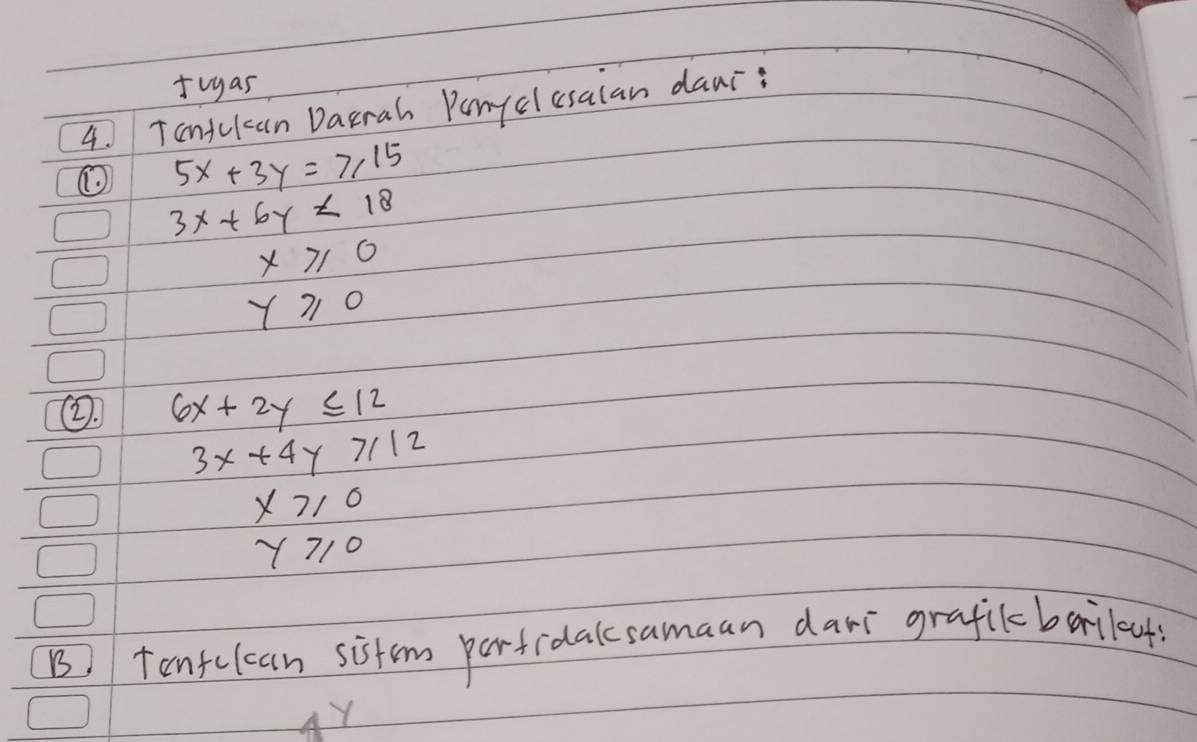 tugas
A. Tentukan Daerah Penyelesaian dari :
①. 5x + 3y = ≥ 15
3x + 6y ≤ 18
x ≥ 0
y ≥ 0
②. 6x + 2y ≤ 12
3x + 4y ≥ 12
x ≥ 0
y ≥ 0
B. Tentukan sistem pertidaksamaan dari grafik berikut:
y